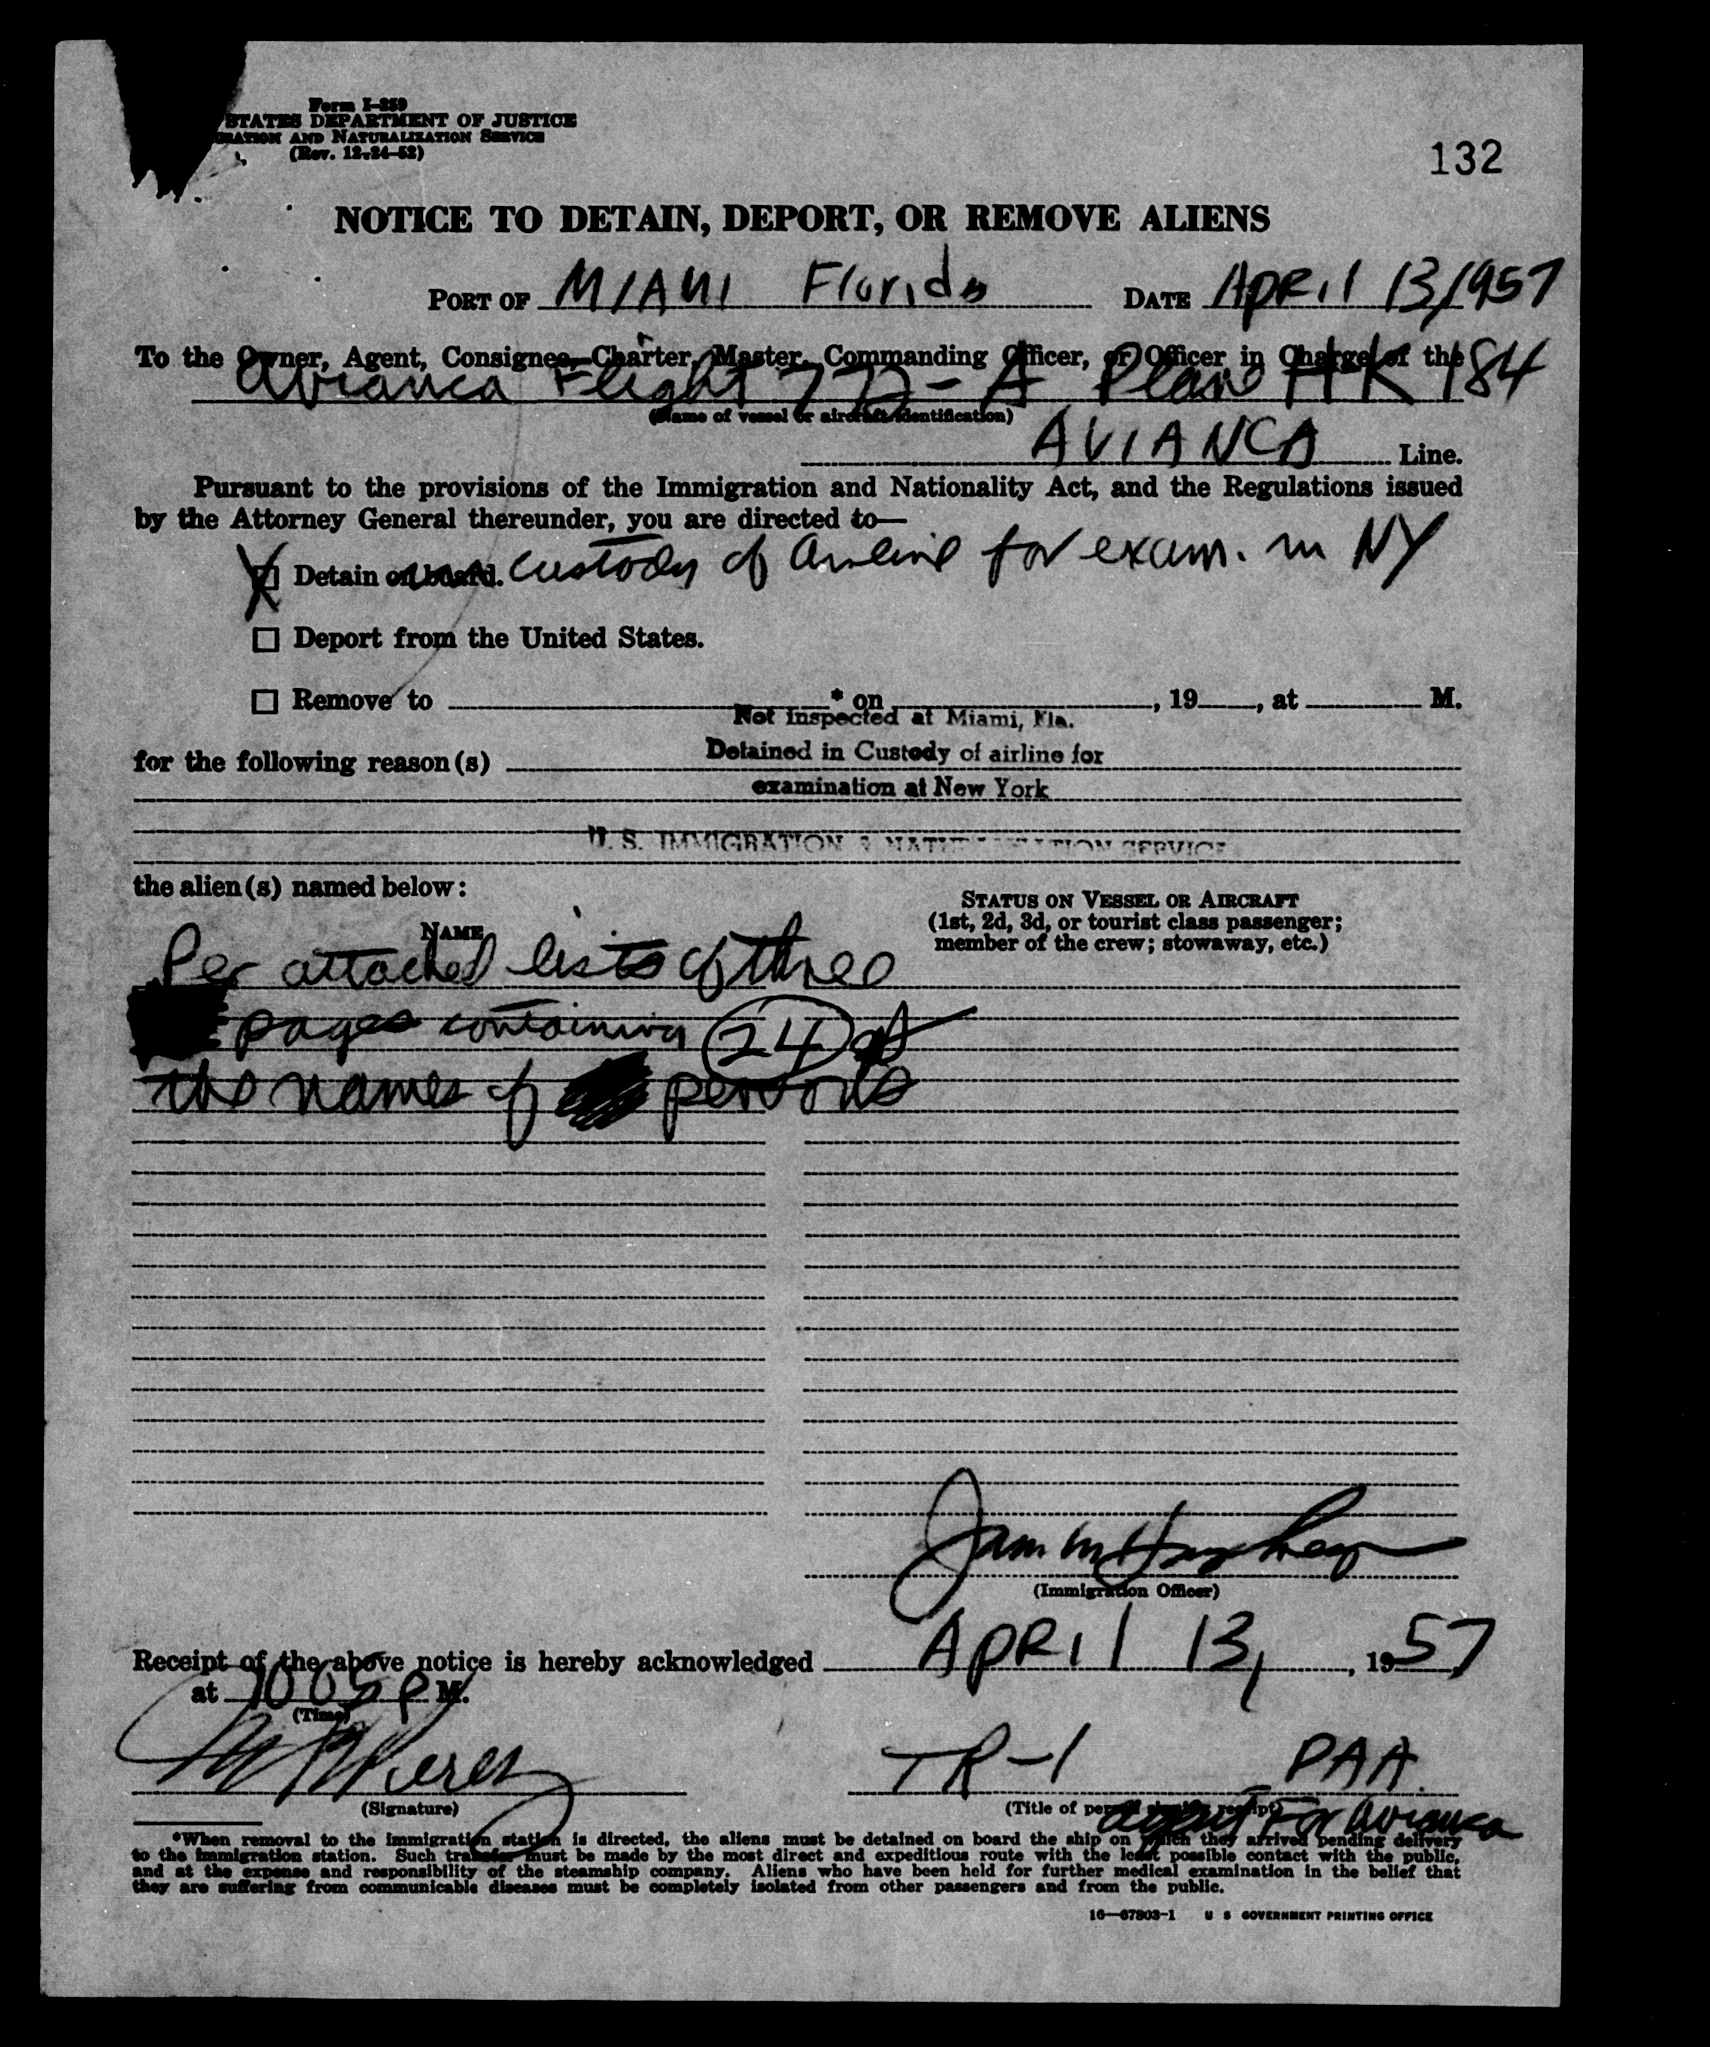 Form I-259
STATES DEPARTMENT OF JUSTICE
RATION AND NATURALIZATION SERVICE
(Rev. 12-24-52)
132
NOTICE TO DETAIN, DEPORT, OR REMOVE ALIENS
PORT OF MIAMI Florida DATE APRIL 13/1957
To the Owner, Agent, Consignee, Charter, Master, Commanding Officer, or Officer in Charge of the
Avianca Flight 772-A Plane HK 184
(Name of vessel or aircraft identification)
AVIANCA Line.
Pursuant to the provisions of the Immigration and Nationality Act, and the Regulations issued
by the Attorney General thereunder, you are directed to—
X Detain on board. custody of airline for exam. in NY
☐ Deport from the United States.
☐ Remove to * on , 19 , at M.
Not Inspected at Miami, Fla.
for the following reason(s) Detained in Custody of airline for
examination at New York
U. S. IMMIGRATION & NATURALIZATION SERVICE
the alien(s) named below:
STATUS ON VESSEL OR AIRCRAFT
(1st, 2d, 3d, or tourist class passenger;
member of the crew; stowaway, etc.)
NAME
Per attached lists of three
pages containing 24
the names of persons
(Immigration Officer)
Receipt of the above notice is hereby acknowledged APRIL 13, 1957
at 1005 P M.
(Time)
Perez
TR-1 PAA
(Signature)
(Title of person signing receipt)
agent For Avianca
*When removal to the immigration station is directed, the aliens must be detained on board the ship on which they arrived pending delivery
to the immigration station. Such transfer must be made by the most direct and expeditious route with the least possible contact with the public,
and at the expense and responsibility of the steamship company. Aliens who have been held for further medical examination in the belief that
they are suffering from communicable diseases must be completely isolated from other passengers and from the public.
16—67803-1 U S GOVERNMENT PRINTING OFFICE